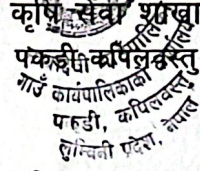 कृषि सेवा शाखा
पकडी कपिलवस्तु
गाउँ कार्यपालिकाको
पकडी, कपिलवस्तु
लुम्बिनी प्रदेश, नेपाल